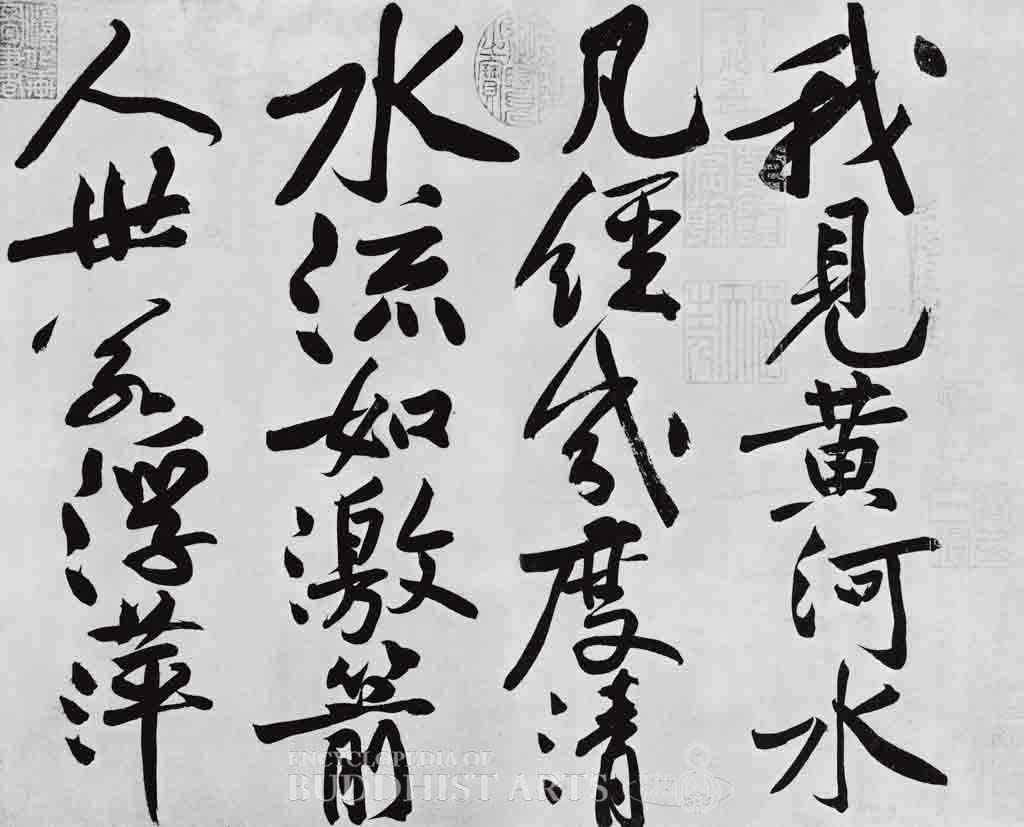 我見黄河水
凡經幾度清
水流如激箭
人世若浮萍
ENCYCLOPEDIA OF
BUDDHIST ARTS